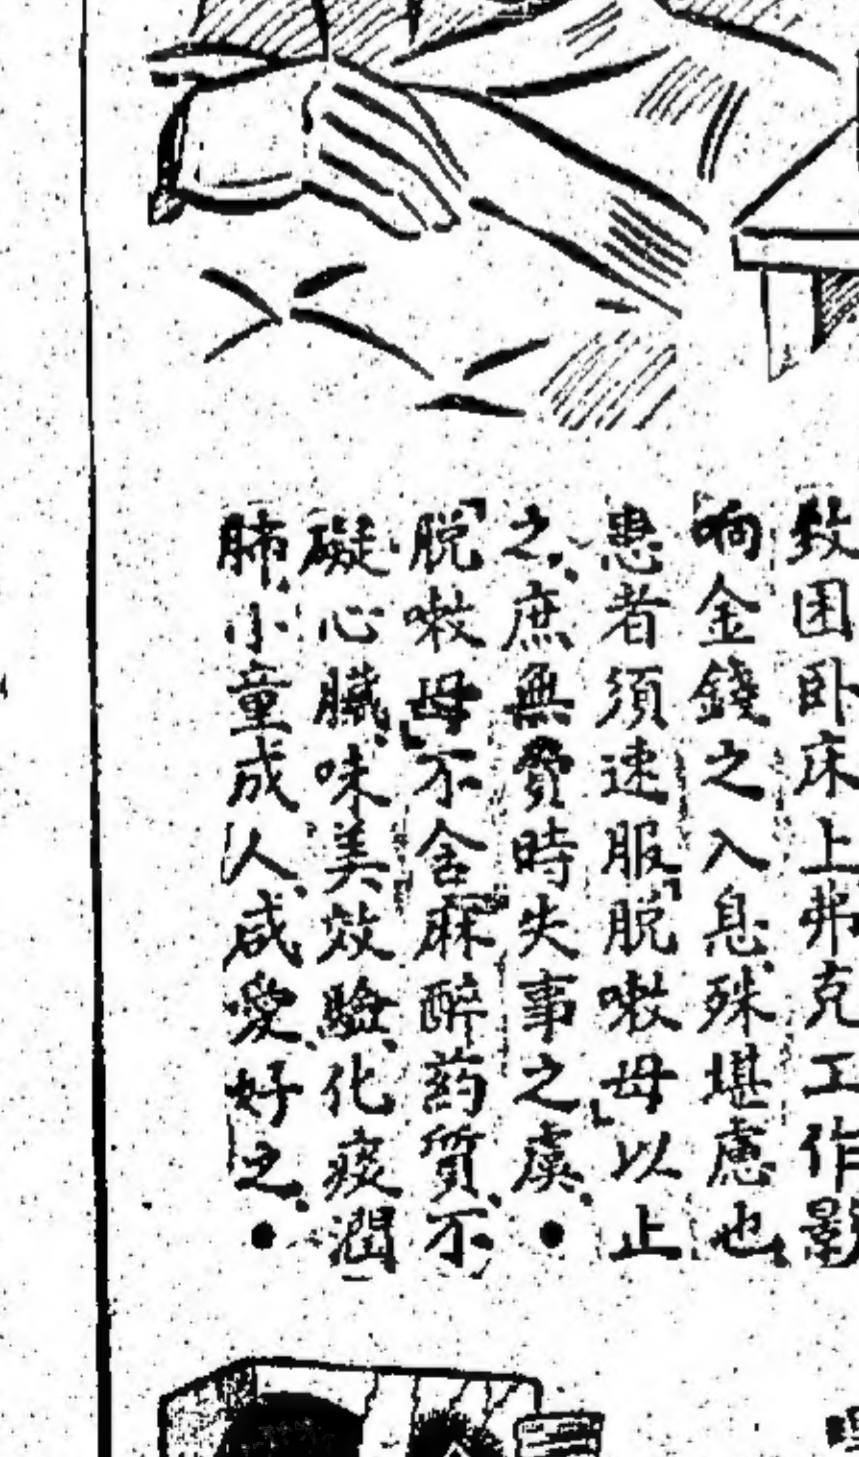 致困卧床上弗克工作影
响金錢之入息、殊堪慮也、
患者須速服「脱嗽母」以止
之、庶無費時失事之虞、●
「脱嗽母」不含「麻醉葯質、不
礙心臓、味美效驗、化痰潤
肺、小童成人、咸愛好之、●